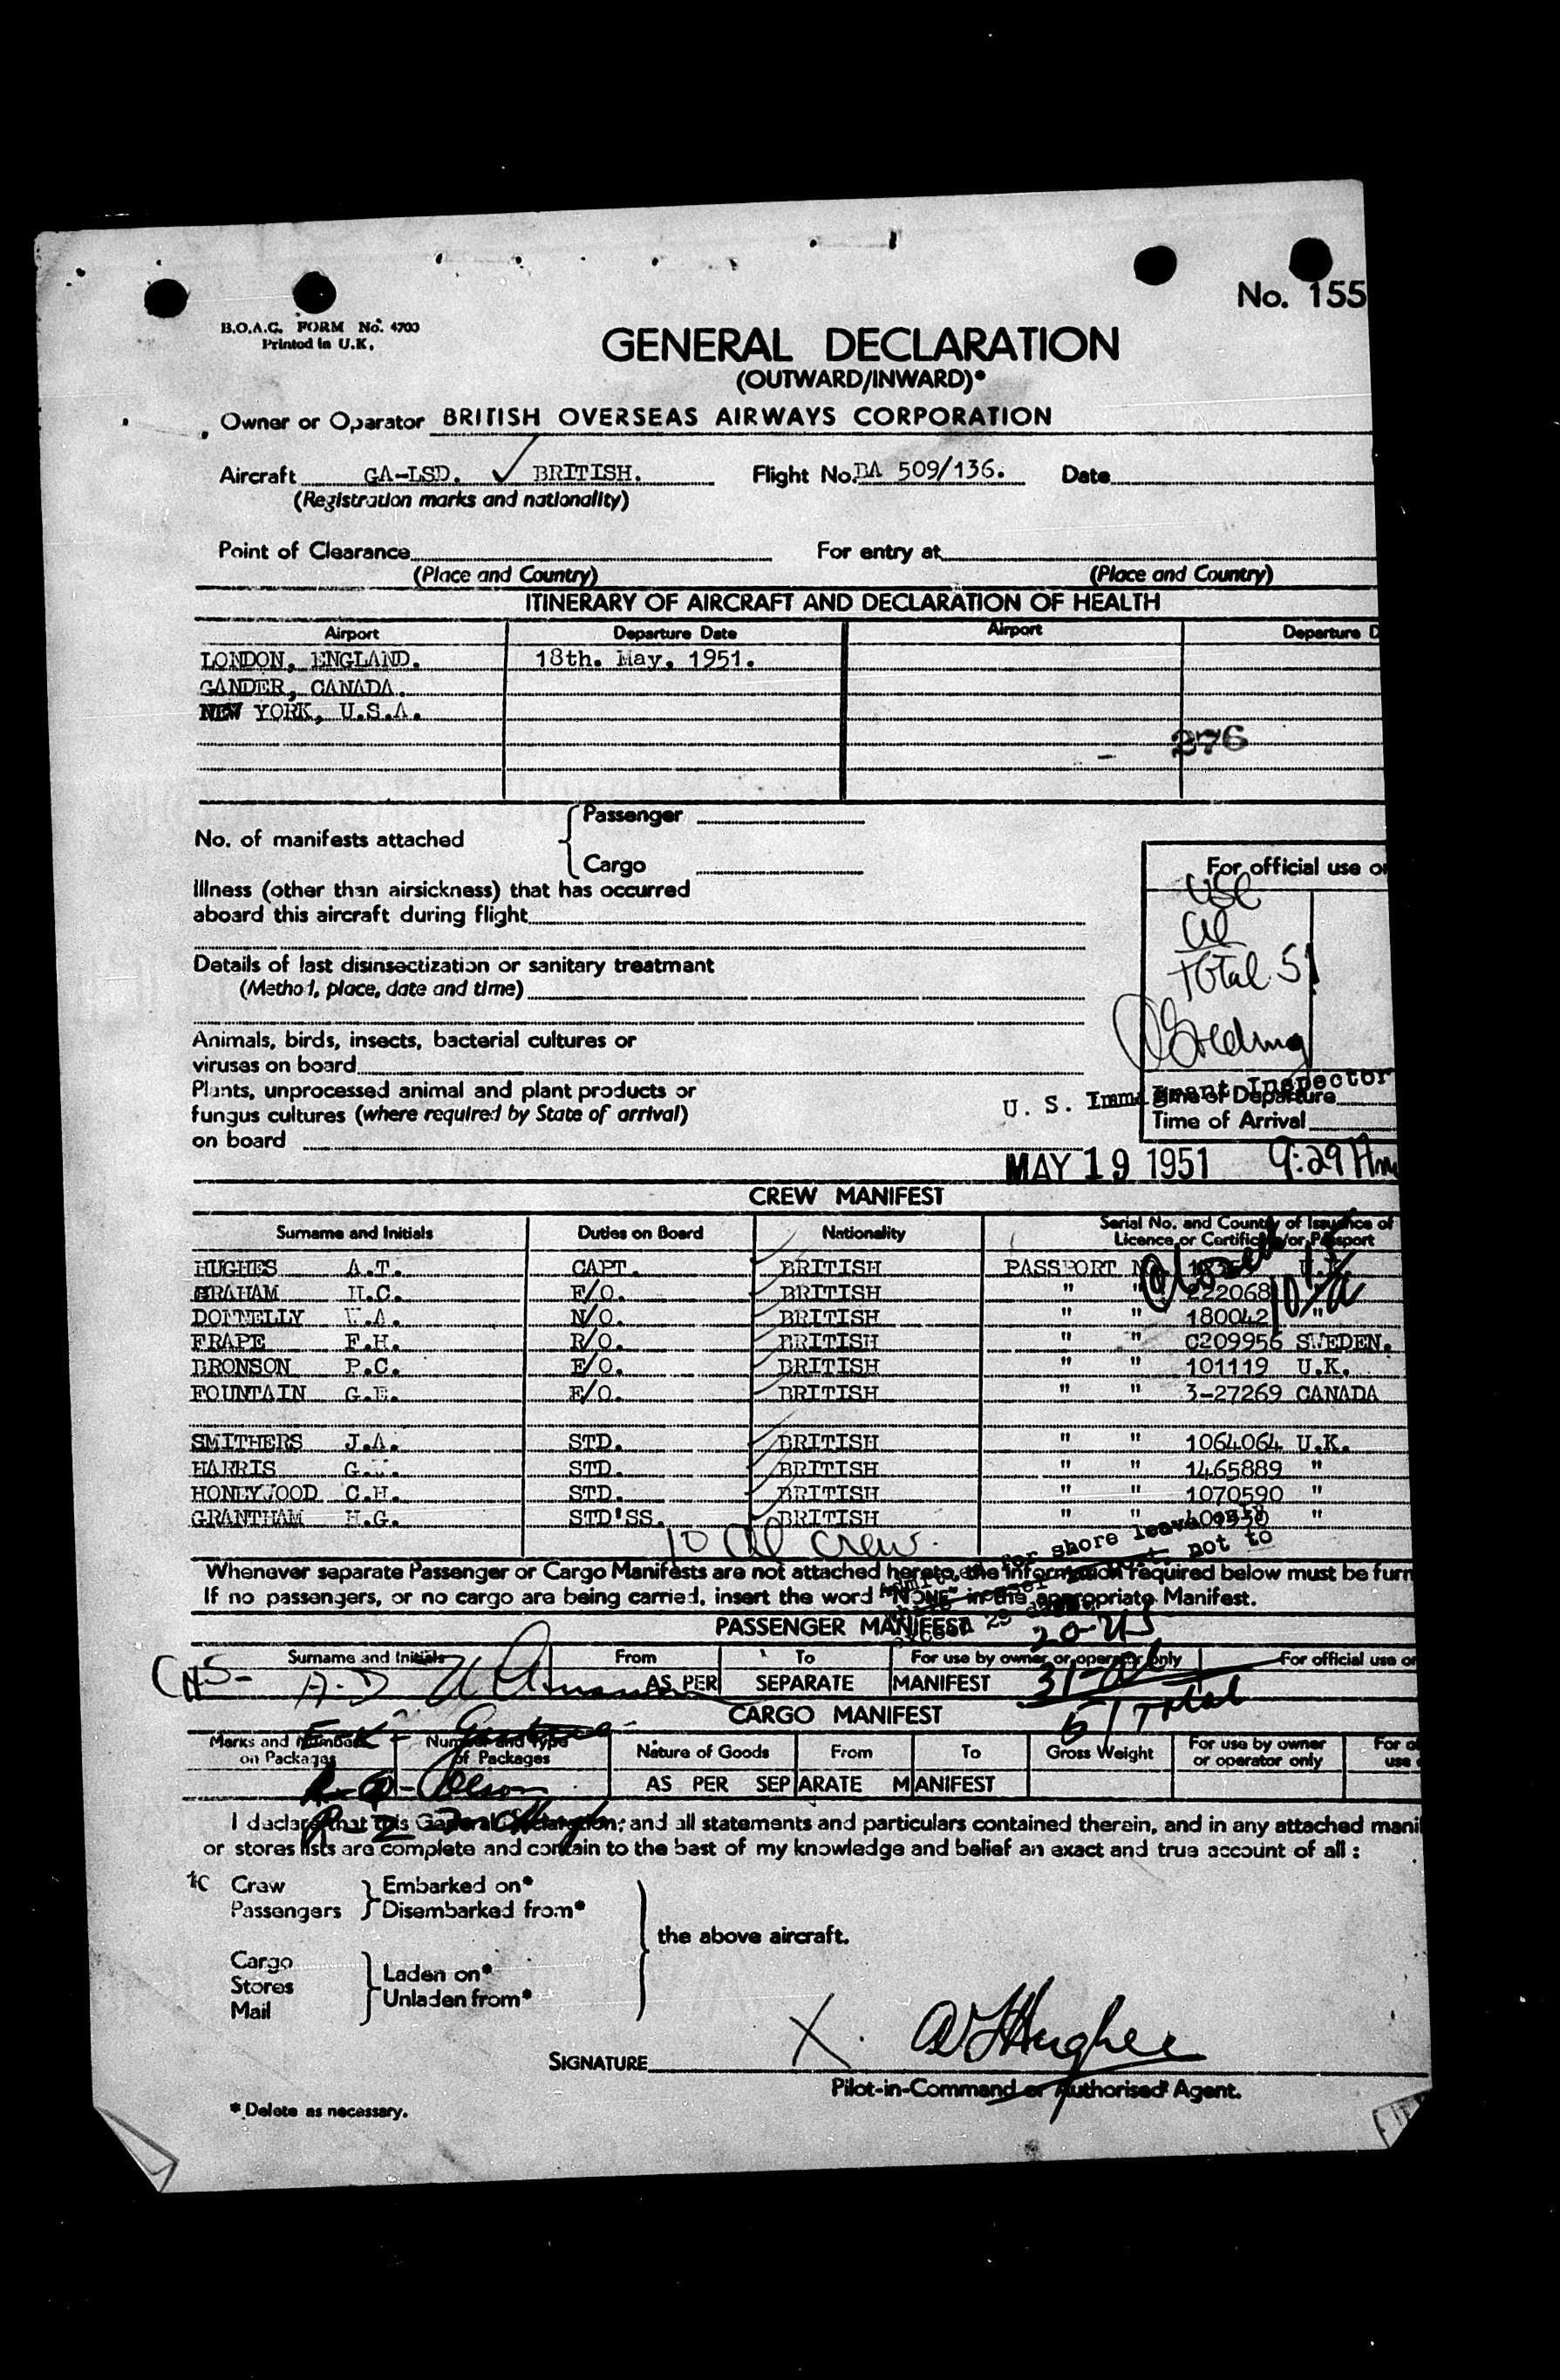 No. 155
B.O.A.C. FORM No. 4700
Printed in U.K.
GENERAL DECLARATION
(OUTWARD/INWARD)*
Owner or Operator BRITISH OVERSEAS AIRWAYS CORPORATION
Aircraft GA-LSD. ✓ BRITISH. Flight No. BA 509/136. Date
(Registration marks and nationality)
Point of Clearance For entry at
(Place and Country) (Place and Country)
ITINERARY OF AIRCRAFT AND DECLARATION OF HEALTH
Airport Departure Date Airport Departure D
LONDON, ENGLAND. 18th. May, 1951.
GANDER, CANADA.
NEW YORK, U.S.A.
376
Passenger
No. of manifests attached
Cargo
For official use o
Illness (other than airsickness) that has occurred
aboard this aircraft during flight
Details of last disinsectization or sanitary treatment
(Method, place, date and time)
Total 51
Animals, birds, insects, bacterial cultures or
viruses on board
Plants, unprocessed animal and plant products or
fungus cultures (where required by State of arrival)
on board
U. S. Immigrant Inspector
Time of Departure
Time of Arrival
MAY 19 1951 9:29 Am
CREW MANIFEST
Surname and Initials Duties on Board Nationality Serial No. and Country of Issuance of
Licence or Certificate/or Passport
HUGHES A.T. CAPT. BRITISH PASSPORT U.K.
GRAHAM H.C. F/O. BRITISH " " 222068
DONNELLY W.A. N/O. BRITISH " " 180042 "
FRAPE F.H. R/O. BRITISH " " C209956 SWEDEN.
BRONSON P.C. E/O. BRITISH " " 101119 U.K.
FOUNTAIN G.E. E/O. BRITISH " " 3-27269 CANADA
SMITHERS J.A. STD. BRITISH " " 1064064 U.K.
HARRIS G. STD. BRITISH " " 1465889 "
HONEYWOOD C.H. STD. BRITISH " " 1070590 "
GRANTHAM H.G. STD'SS. BRITISH " " "
10 al crew.
for shore leave only
not to
29
Whenever separate Passenger or Cargo Manifests are not attached hereto, the information required below must be furn
If no passengers, or no cargo are being carried, insert the word "NONE" in the appropriate Manifest.
PASSENGER MANIFEST
20-US
Surname and Initials From To For use by owner or operator only For official use o
AS PER SEPARATE MANIFEST
31-al
51 Total
CARGO MANIFEST
Marks and Numbers on Packages Number and Type of Packages Nature of Goods From To Gross Weight For use by owner or operator only For o use
AS PER SEPARATE MANIFEST
I declare that this General Declaration; and all statements and particulars contained therein, and in any attached mani
or stores lists are complete and contain to the best of my knowledge and belief an exact and true account of all :
Crew Embarked on*
Passengers Disembarked from*
the above aircraft.
Cargo
Laden on*
Stores
Unladen from*
Mail
X. A T Hughes
SIGNATURE
Pilot-in-Command or Authorised Agent.
* Delete as necessary.